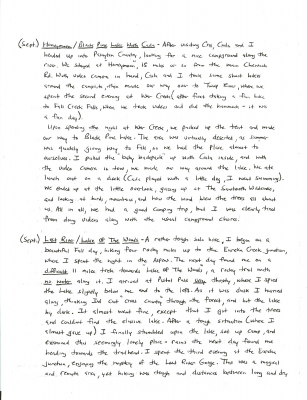 (Sept.) Honeymoon / Black Pine Lake With Cails - After visiting Cris, Cails and I
headed up into Okanogan County, looking for a nice campground along the
river. We stayed at Honeymoon, 15 miles or so from the main Chewuch
Rd. With video camera in hand, Cails and I took some short hikes
around the campsite, then made our way over to Twisp River, where we
spent the second evening at War Creek, after first taking a fun hike
to Falls Creek Falls, where we took videos and did the hammock - it was
a fun day).
Upon spending the night at War Creek, we packed up the tent and made
our way to Black Pine Lake. The area was virtually deserted, as summer
was quickly giving way to Fall so we had the place almost to
ourselves. I packed the baby backpack up with Cails inside, and with
the video camera in tow, we made our way around the lake. We ate
lunch out on a dock (Cails played with a little dog, I went swimming).
We ended up at the little overlook, gazing up at The Sawtooth Wilderness,
and looking at birds, mountains, and how the wind blew the trees all about
us. All in all, we had a good camping trip, but I was clearly tired
from doing videos along with the usual campground chores.
(Sept.) Lost River / Lake Of The Woods - A rather tough solo hike, I began on a
beautiful Fall day, hiking four rocky miles up to the Eureka Creek junction,
where I spent the night in the aspens. The next day found me on a
difficult 11 miles trek towards Lake Of The Woods, a rocky trail with
no water along it. I arrived at
Pass
thereby where I spied
the lake slightly below me and to the left. As it was dusk I hurried
along, thinking I'd cut "cross country" through the forest, and hit the lake
by dark. It almost went fine, except that I got into the trees
and couldn't find the elusive lake. After a tough situation (where I
almost gave up) I finally stumbled upon the lake, set up camp, and
examined this seemingly lonely place - rains the next day found me
heading towards the trailhead. I spent the third evening at the Eureka
junction, enjoying the mystery of the Lost River Gorge. This was a magical
and remote area, yet hiking was tough and distances between long and dry.